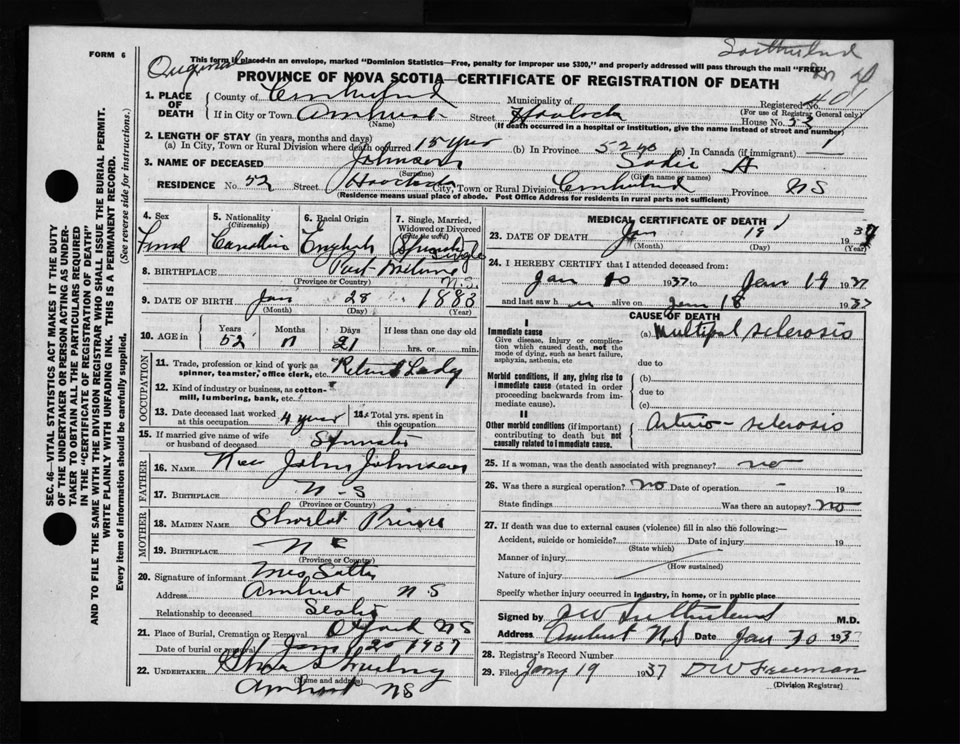 FORM 6
Original
This form if placed in an envelope, marked "Dominion Statistics—Free, penalty for improper use $300," and properly addressed will pass through the mail "FREE"
PROVINCE OF NOVA SCOTIA—CERTIFICATE OF REGISTRATION OF DEATH
1. PLACE OF DEATH
County of
Municipality of
Registered No.
(For use of Registrar General only)
If in City or Town Amherst Street Havelock House No. 52
(Name) (If death occurred in a hospital or institution, give the name instead of street and number)
2. LENGTH OF STAY (in years, months and days)
(a) In City, Town or Rural Division where death occurred 15 yrs (b) In Province 52 yrs (c) In Canada (if immigrant) —
3. NAME OF DECEASED Johnson Sadie A
(Surname) (Given name or names)
RESIDENCE No. 52 Street City, Town or Rural Division Province NS
(Residence means usual place of abode. Post Office Address for residents in rural parts not sufficient)
4. Sex
5. Nationality (Citizenship) Canadian
6. Racial Origin English
7. Single, Married, Widowed or Divorced (write the word) Single
8. BIRTHPLACE Port N.S.
(Province or Country)
9. DATE OF BIRTH Jan 28 1883
(Month) (Day) (Year)
10. AGE in Years 52 Months 11 Days 21 If less than one day old hrs. or min.
OCCUPATION
11. Trade, profession or kind of work as spinner, teamster, office clerk, etc. Lady
12. Kind of industry or business, as cotton-mill, lumbering, bank, etc.
13. Date deceased last worked at this occupation 4 years
Total yrs. spent in this occupation
15. If married give name of wife or husband of deceased
FATHER
16. NAME Rev John Johnson
17. BIRTHPLACE N-S
(Province or Country)
MOTHER
18. MAIDEN NAME Prince
19. BIRTHPLACE
(Province or Country)
20. Signature of informant Mrs
Address Amherst N.S
Relationship to deceased
21. Place of Burial, Cremation or Removal Oxford NS
Date of burial or removal Jan 20 1937
22. UNDERTAKER
(Name and address)
Amherst NS
MEDICAL CERTIFICATE OF DEATH
23. DATE OF DEATH Jan 19 1937
(Month) (Day)
24. I HEREBY CERTIFY that I attended deceased from:
Jan 10 1937 to Jan 19 1937
and last saw h er alive on Jan 18 1937
CAUSE OF DEATH
I
Immediate cause
Give disease, injury or complication which caused death, not the mode of dying, such as heart failure, asphyxia, asthenia, etc
(a) Multipal sclerosis
due to
Morbid conditions, if any, giving rise to immediate cause (stated in order proceeding backwards from immediate cause).
(b)
due to
(c)
II
Other morbid conditions (if important) contributing to death but not causally related to immediate cause.
Arterio-sclerosis
25. If a woman, was the death associated with pregnancy? no
26. Was there a surgical operation? NO Date of operation - 19
State findings Was there an autopsy? NO
27. If death was due to external causes (violence) fill in also the following:—
Accident, suicide or homicide? Date of injury 19
(State which)
Manner of injury
(How sustained)
Nature of injury
Specify whether injury occurred in industry, in home, or in public place
Signed by Sutherland M.D.
Address Amherst N.S Date Jan 30 1937
28. Registrar's Record Number
29. Filed Jany 19 1937 Freeman
(Division Registrar)
SEC. 46—VITAL STATISTICS ACT MAKES IT THE DUTY OF THE UNDERTAKER OR PERSON ACTING AS UNDERTAKER TO OBTAIN ALL THE PARTICULARS REQUIRED IN THE "CERTIFICATE OF REGISTRATION OF DEATH" AND TO FILE THE SAME WITH THE DIVISION REGISTRAR WHO SHALL ISSUE THE BURIAL PERMIT.
WRITE PLAINLY WITH UNFADING INK. THIS IS A PERMANENT RECORD.
Every item of information should be carefully supplied. (See reverse side for instructions.)